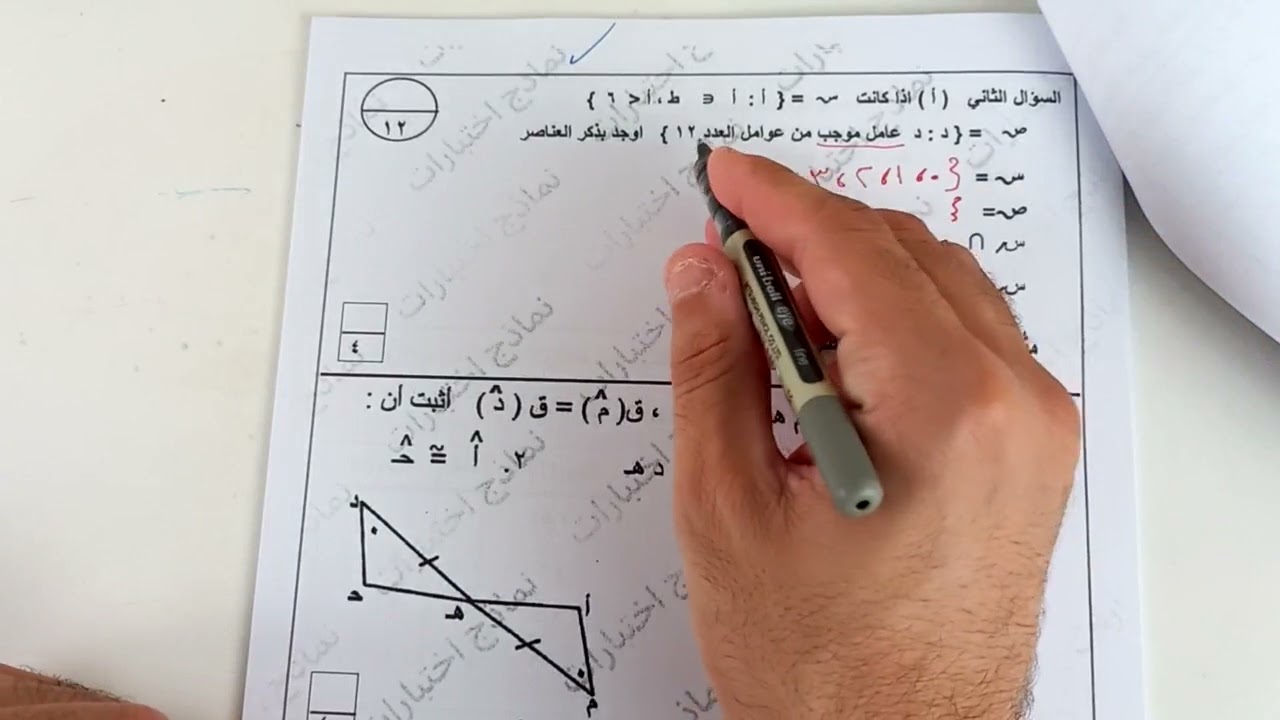 السؤال الثاني ( أ ) اذا كانت س = { أ : أ ∈ ط ، أ < ٦ }
ص = { د : د عامل موجب من عوامل العدد ١٢ } اوجد بذكر العناصر
١٢
س = { ٠ ، ١ ، ٢ ، ٣
ص = {
س ∩
س
٤
، ق ( م̂ ) = ق ( د̂ ) أثبت أن :
د هـ
أ̂ ≅ حـ̂
د
حـ
هـ
أ
م
نماذج اختبارات
uniball eye
fine